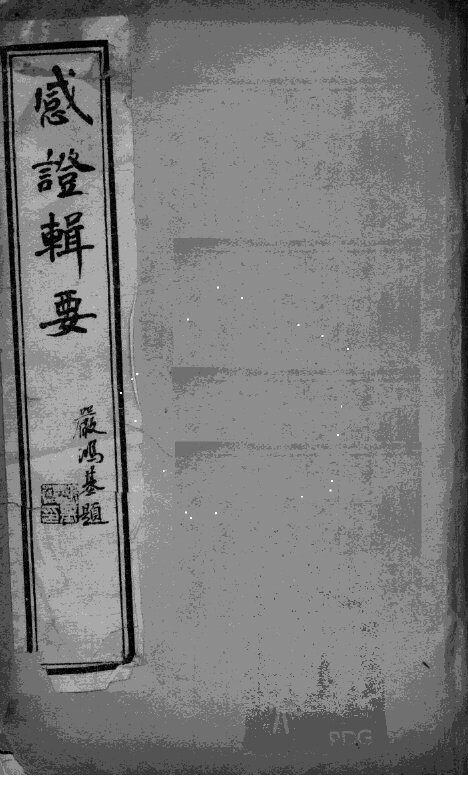 感證輯要
嚴鴻基題
PDG